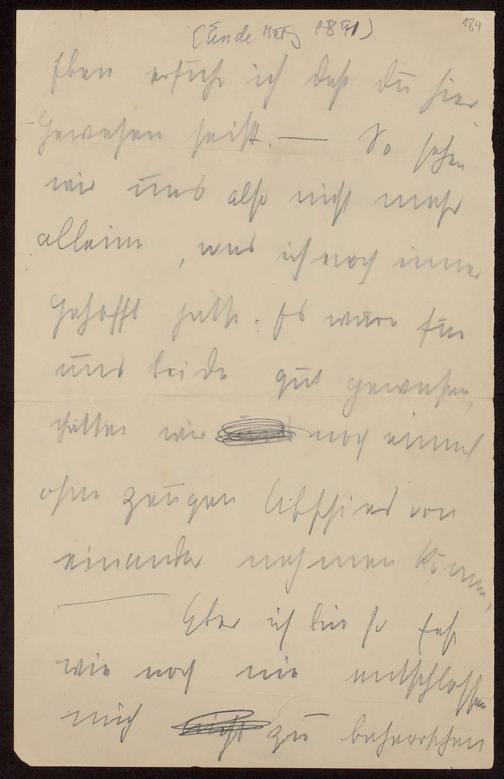 (Ende März 1891)
184
Eben erfuhr ich daß du hier
gewesen seist. — So sehen
wir uns also nicht mehr
allein, was ich noch immer
gehofft hatte. Es wäre für
uns beide gut gewesen,
hätten wir noch einmal
ohne Zeugen Abschied von
einander nehmen können,
Aber ich bin so fest
wie noch nie entschlossen
mich nicht zu beherrschen